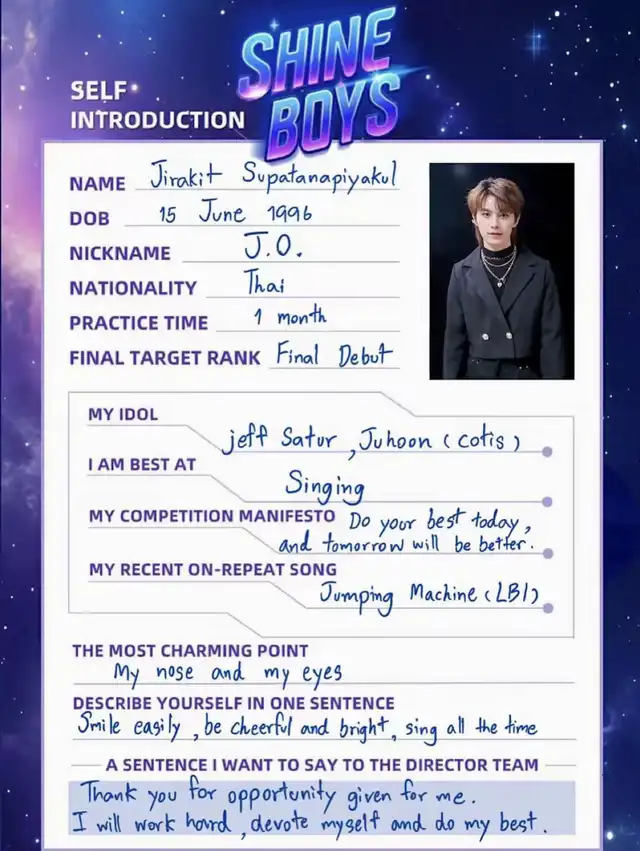 SHINE
BOYS
SELF
INTRODUCTION
NAME Jirakit Supatanapiyakul
DOB 15 June 1996
NICKNAME J.O.
NATIONALITY Thai
PRACTICE TIME 1 month
FINAL TARGET RANK Final Debut
MY IDOL
jeff Satur , Juhoon ( cotis )
I AM BEST AT
Singing
MY COMPETITION MANIFESTO Do your best today,
and tomorrow will be better.
MY RECENT ON-REPEAT SONG
Jumping Machine ( LBI )
THE MOST CHARMING POINT
My nose and my eyes
DESCRIBE YOURSELF IN ONE SENTENCE
Smile easily , be cheerful and bright, sing all the time
A SENTENCE I WANT TO SAY TO THE DIRECTOR TEAM
Thank you for opportunity given for me.
I will work hard , devote myself and do my best.